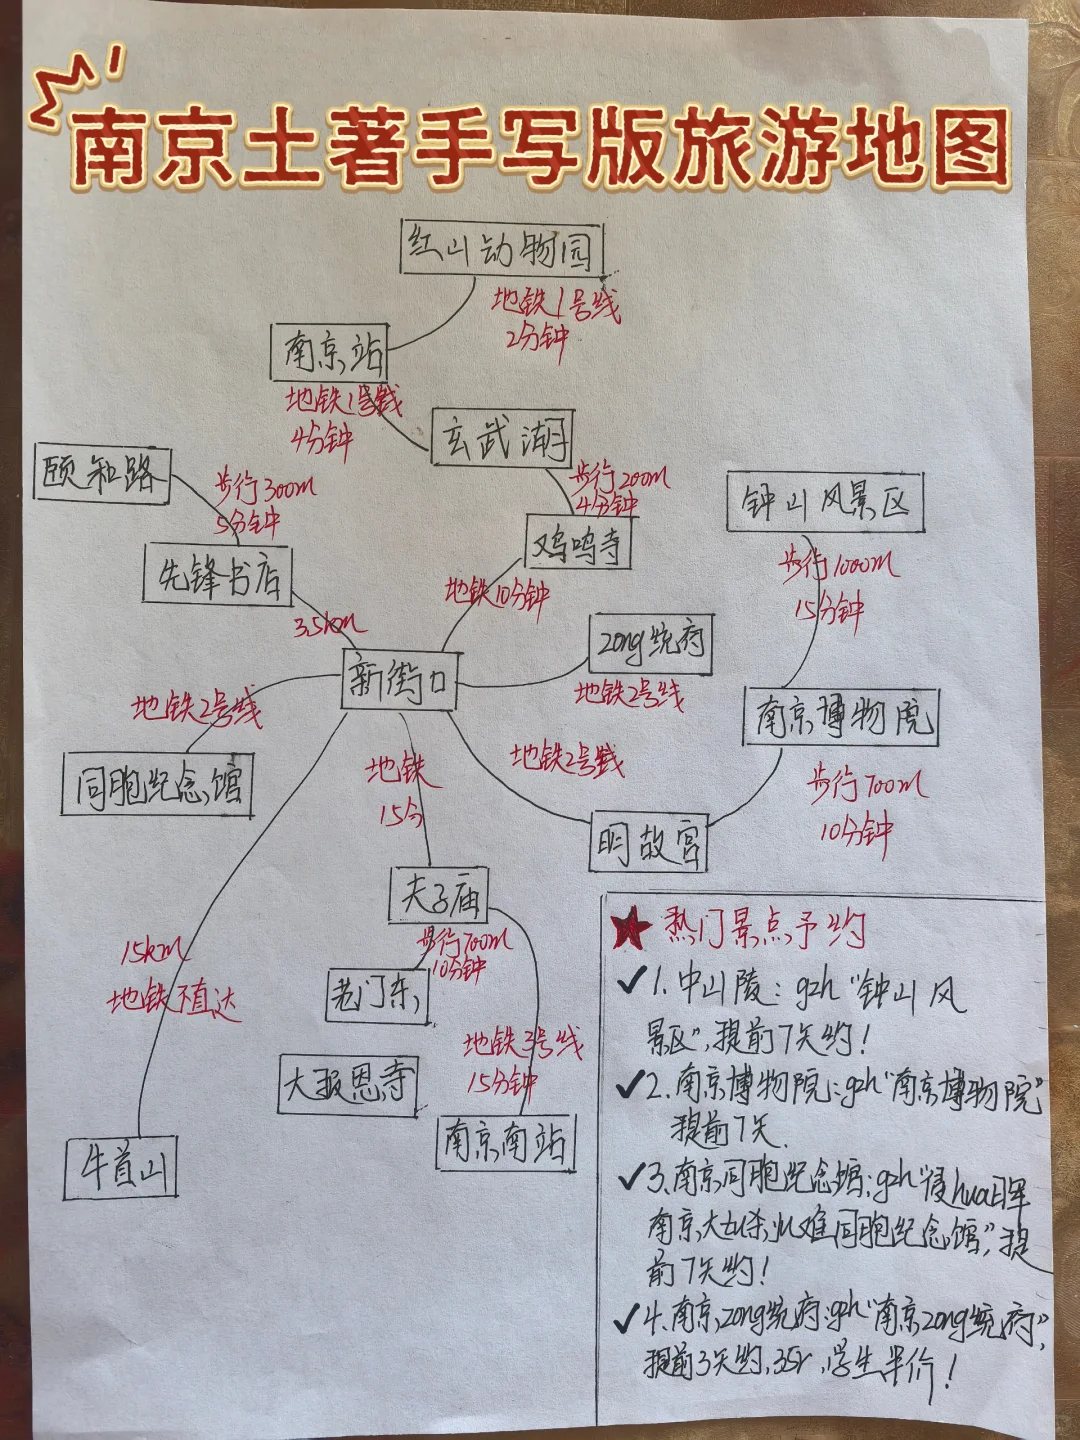 南京土著手写版旅游地图
红山动物园
地铁1号线
2分钟
南京站
地铁1号线
4分钟
玄武湖
颐和路
步行300m
5分钟
步行200m
4分钟
钟山风景区
先锋书店
鸡鸣寺
步行1000m
15分钟
3.5km
地铁10分钟
zong统府
地铁2号线
新街口
地铁2号线
南京博物院
同胞纪念馆
地铁
15分
地铁2号线
步行700m
10分钟
明故宫
夫子庙
步行700m
10分钟
老门东
15km
地铁不直达
地铁3号线
15分钟
大报恩寺
南京南站
牛首山
★热门景点予约
✓1.中山陵:gzh“钟山风
景区”,提前7天约!
✓2.南京博物院:gzh“南京博物院”
提前7天.
✓3.南京同胞纪念馆:gzh“侵hua日军
南京大tu杀yu难同胞纪念馆”,提
前7天约!
✓4.南京zong统府:gzh“南京zong统府”,
提前3天约,35r,学生半价!